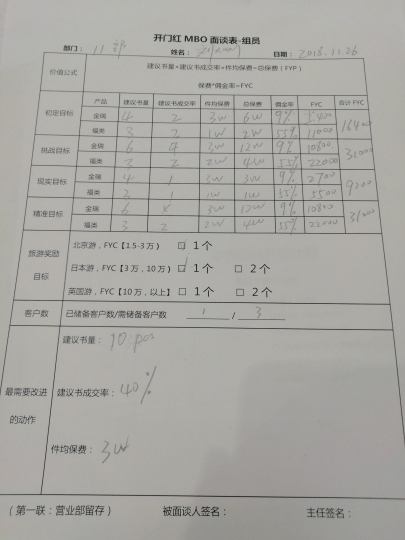 开门红 MBO 面谈表-组员
部门： 11 部 姓名： 日期： 2018.11.26
价值公式 建议书量×建议书成交率×件均保费=总保费（FYP）
保费*佣金率=FYC
产品 建议书量 建议书成交率 件均保费 总保费 佣金率 FYC 合计 FYC
初定目标 金瑞 4 2 3w 6w 9% 5400 16400
福类 3 2 1w 2w 55% 11000
挑战目标 金瑞 6 4 3w 12w 9% 10800
福类 3 2 2w 4w 55% 22000
现实目标 金瑞 4 1 3w 3w 9% 2700 9200
福类 3 1 1w 1w 55% 5500
精准目标 金瑞 6 3w 12w 9% 10800
福类 3 2 2w 4w 55% 22000
旅游奖励
目标
北京游，FYC【1.5-3万】 □ 1个
日本游，FYC【3万，10万） □ 1个 □ 2个
英国游，FYC【10万，以上】 □ 1个 □ 2个
客户数 已储备客户数/需储备客户数 1 / 3
最需要改进
的动作
建议书量： 10
建议书成交率： 40%
件均保费： 3w
（第一联：营业部留存） 被面谈人签名： 主任签名：